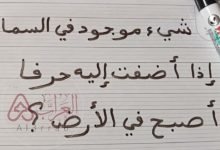 شيء موجود في السما
إذا أضفت إليه حرفا
أصبح في الأرض ؟